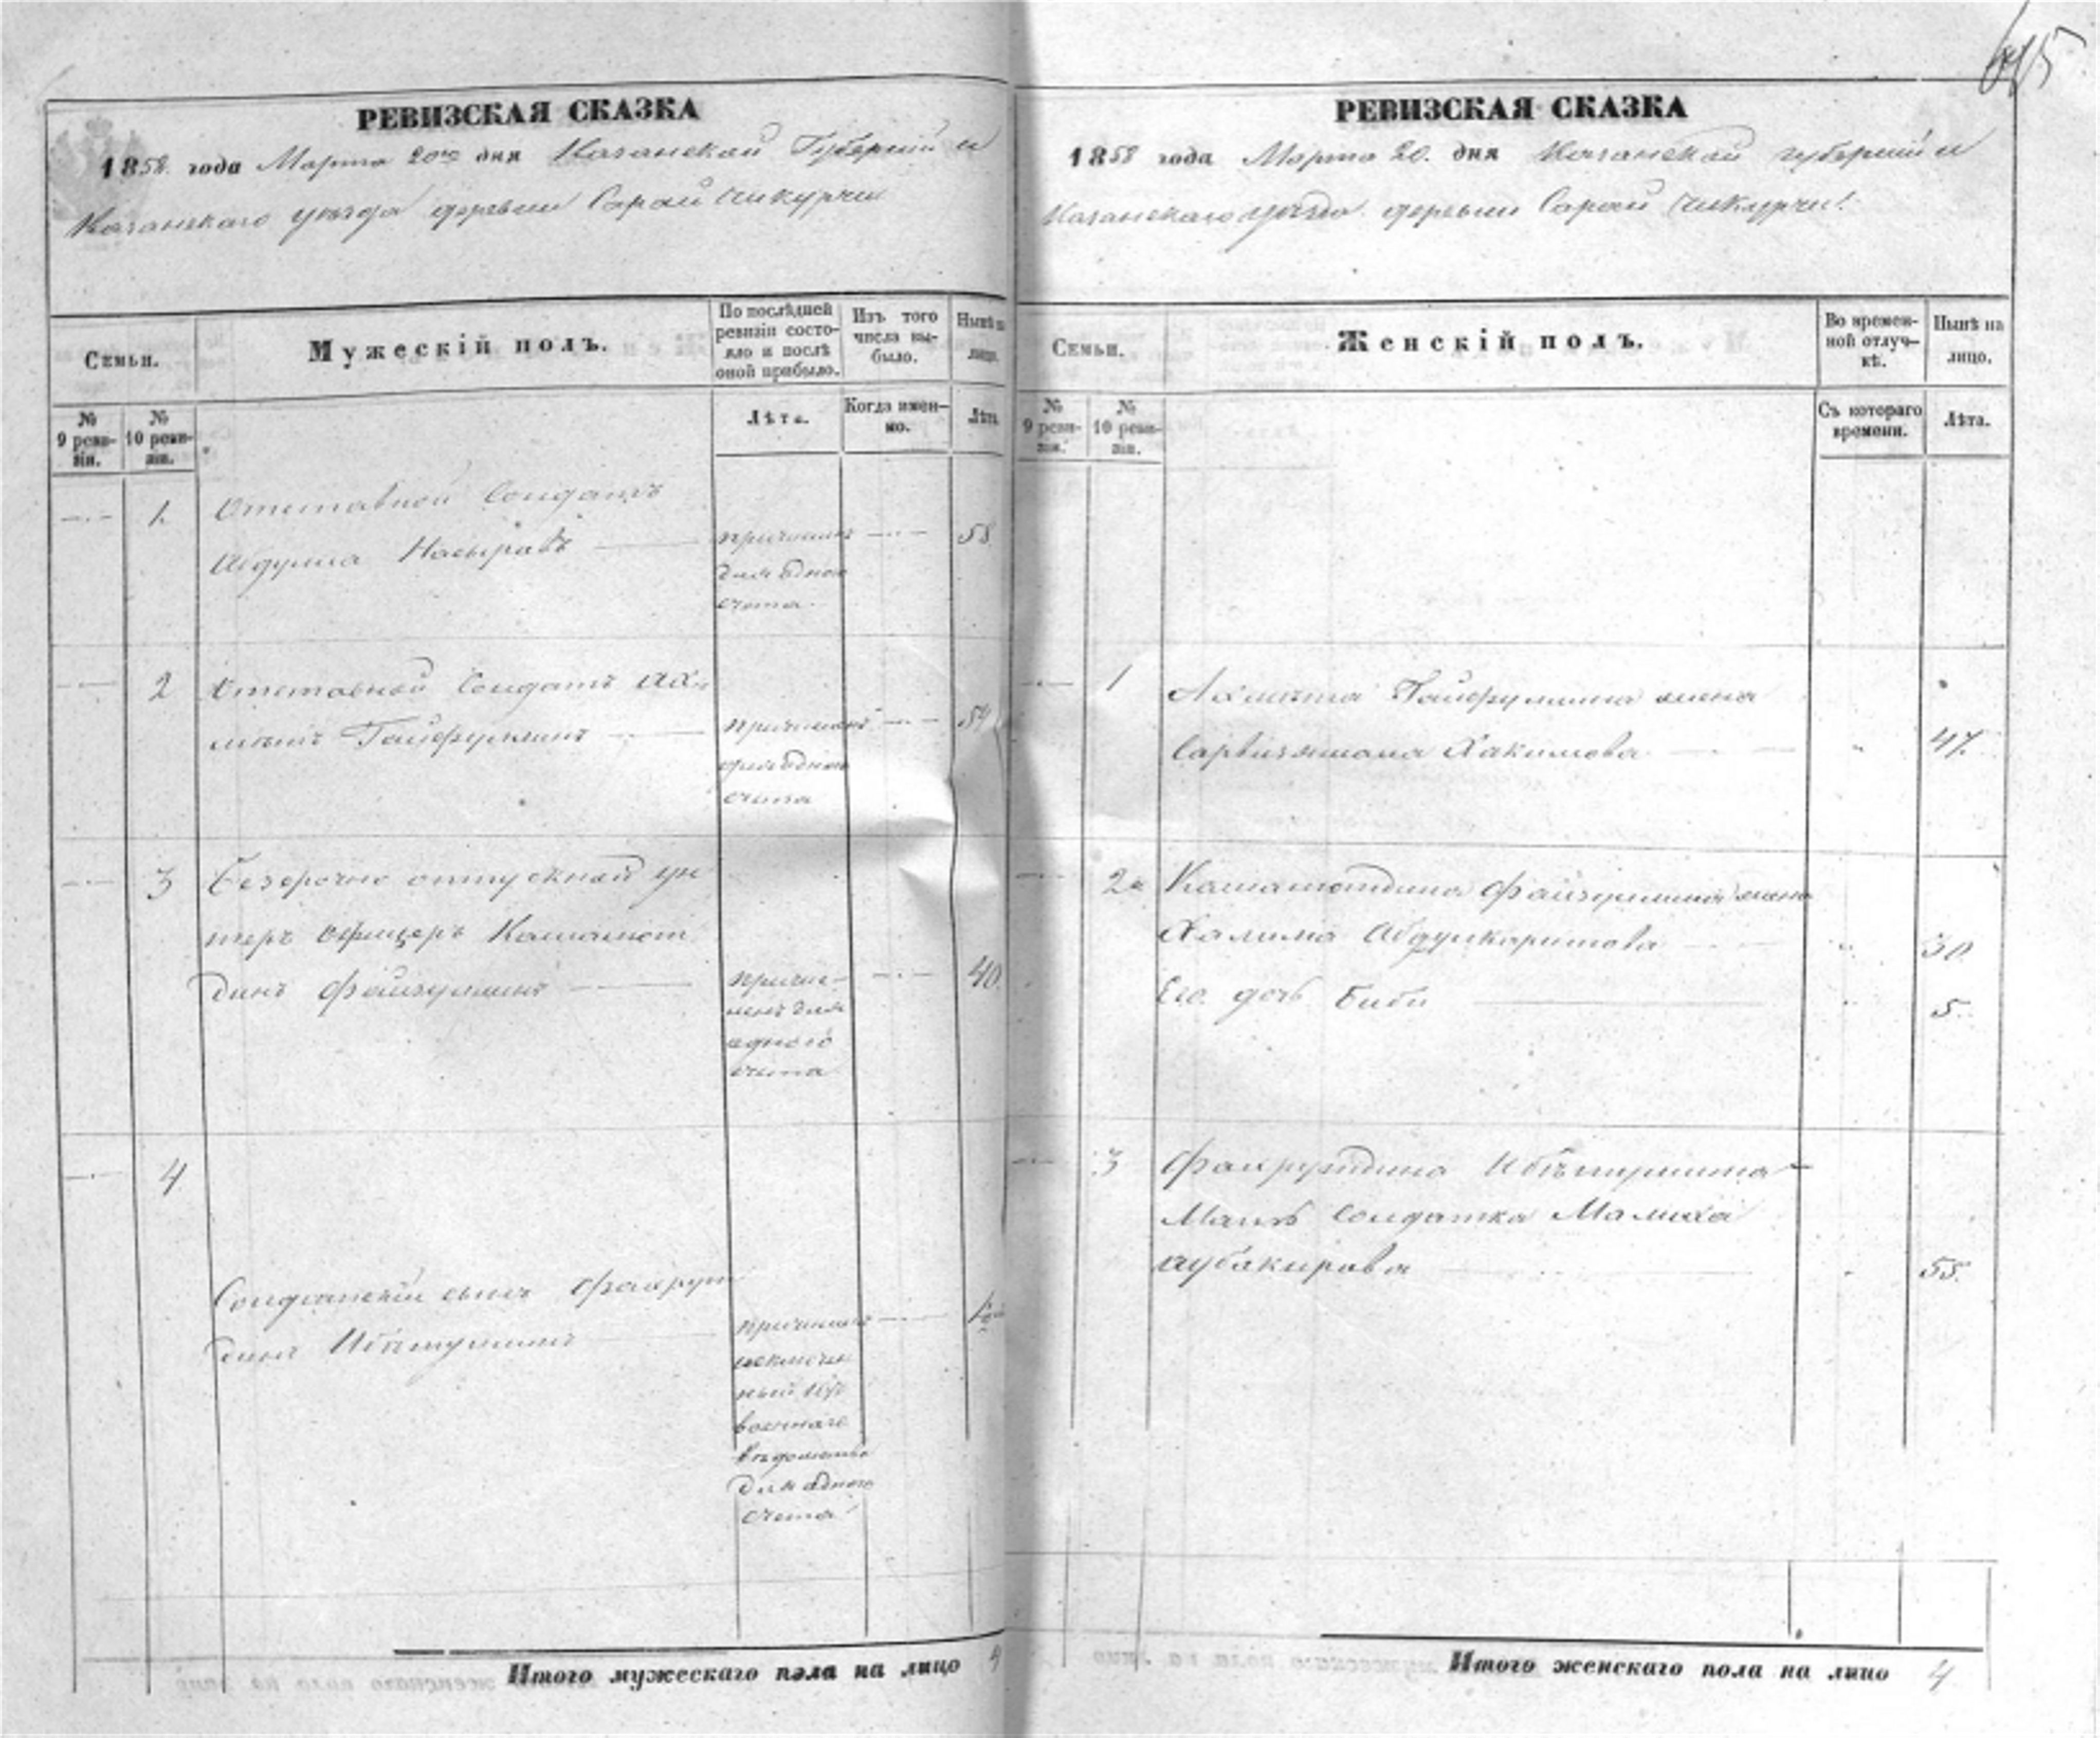 675
РЕВИЗСКАЯ СКАЗКА
1858 года Марта 20го дня Казанской Губернии и
Казанскаго уѣзда деревни Сарай Чикурчи
Семьи.
Мужескій полъ.
По послѣдней ревизіи состояло и послѣ оной прибыло.
Изъ того числа выбыло.
Нынѣ на лицо.
№ 9 ревизіи.
№ 10 ревизіи.
Лѣта.
Когда именно.
Лѣта.
1.
Отставной Солдатъ
Абдулла Насыровъ
причисленъ
для однаго
счета.
58.
2
Отставной Солдатъ Ах-
метъ Гайфуллинъ
причисленъ
для однаго
счета
54
3
Безсрочно отпускной ун
теръ офицеръ Камалет
динъ Файзуллинъ
причис-
ленъ для
однаго
счета
40.
4
Солдатскій сынъ Фахрут
динъ Ибетуллинъ
причисленъ
исключен
ный изъ
военнаго
вѣдомства
для однаго
счета
Итого мужескаго пола на лицо 4
РЕВИЗСКАЯ СКАЗКА
1858 года Марта 20. дня Казанской губернии и
Казанскаго уѣзда деревни Сарай Чикурчи.
Семьи.
Женскій полъ.
Во временной отлучкѣ.
Нынѣ на лицо.
№ 9 ревизіи.
№ 10 ревизіи.
Съ котораго времени.
Лѣта.
1
Ахмета Гайфуллина жена
Хакимова
47.
2
Камалетдина Файзуллина жена
Халима Абдулкаримова
30
Его дочь Биби
5.
3
Фахрутдина Ибетуллина
Мать солдатка Малиха
Аубакирова
55.
Итого женскаго пола на лицо 4